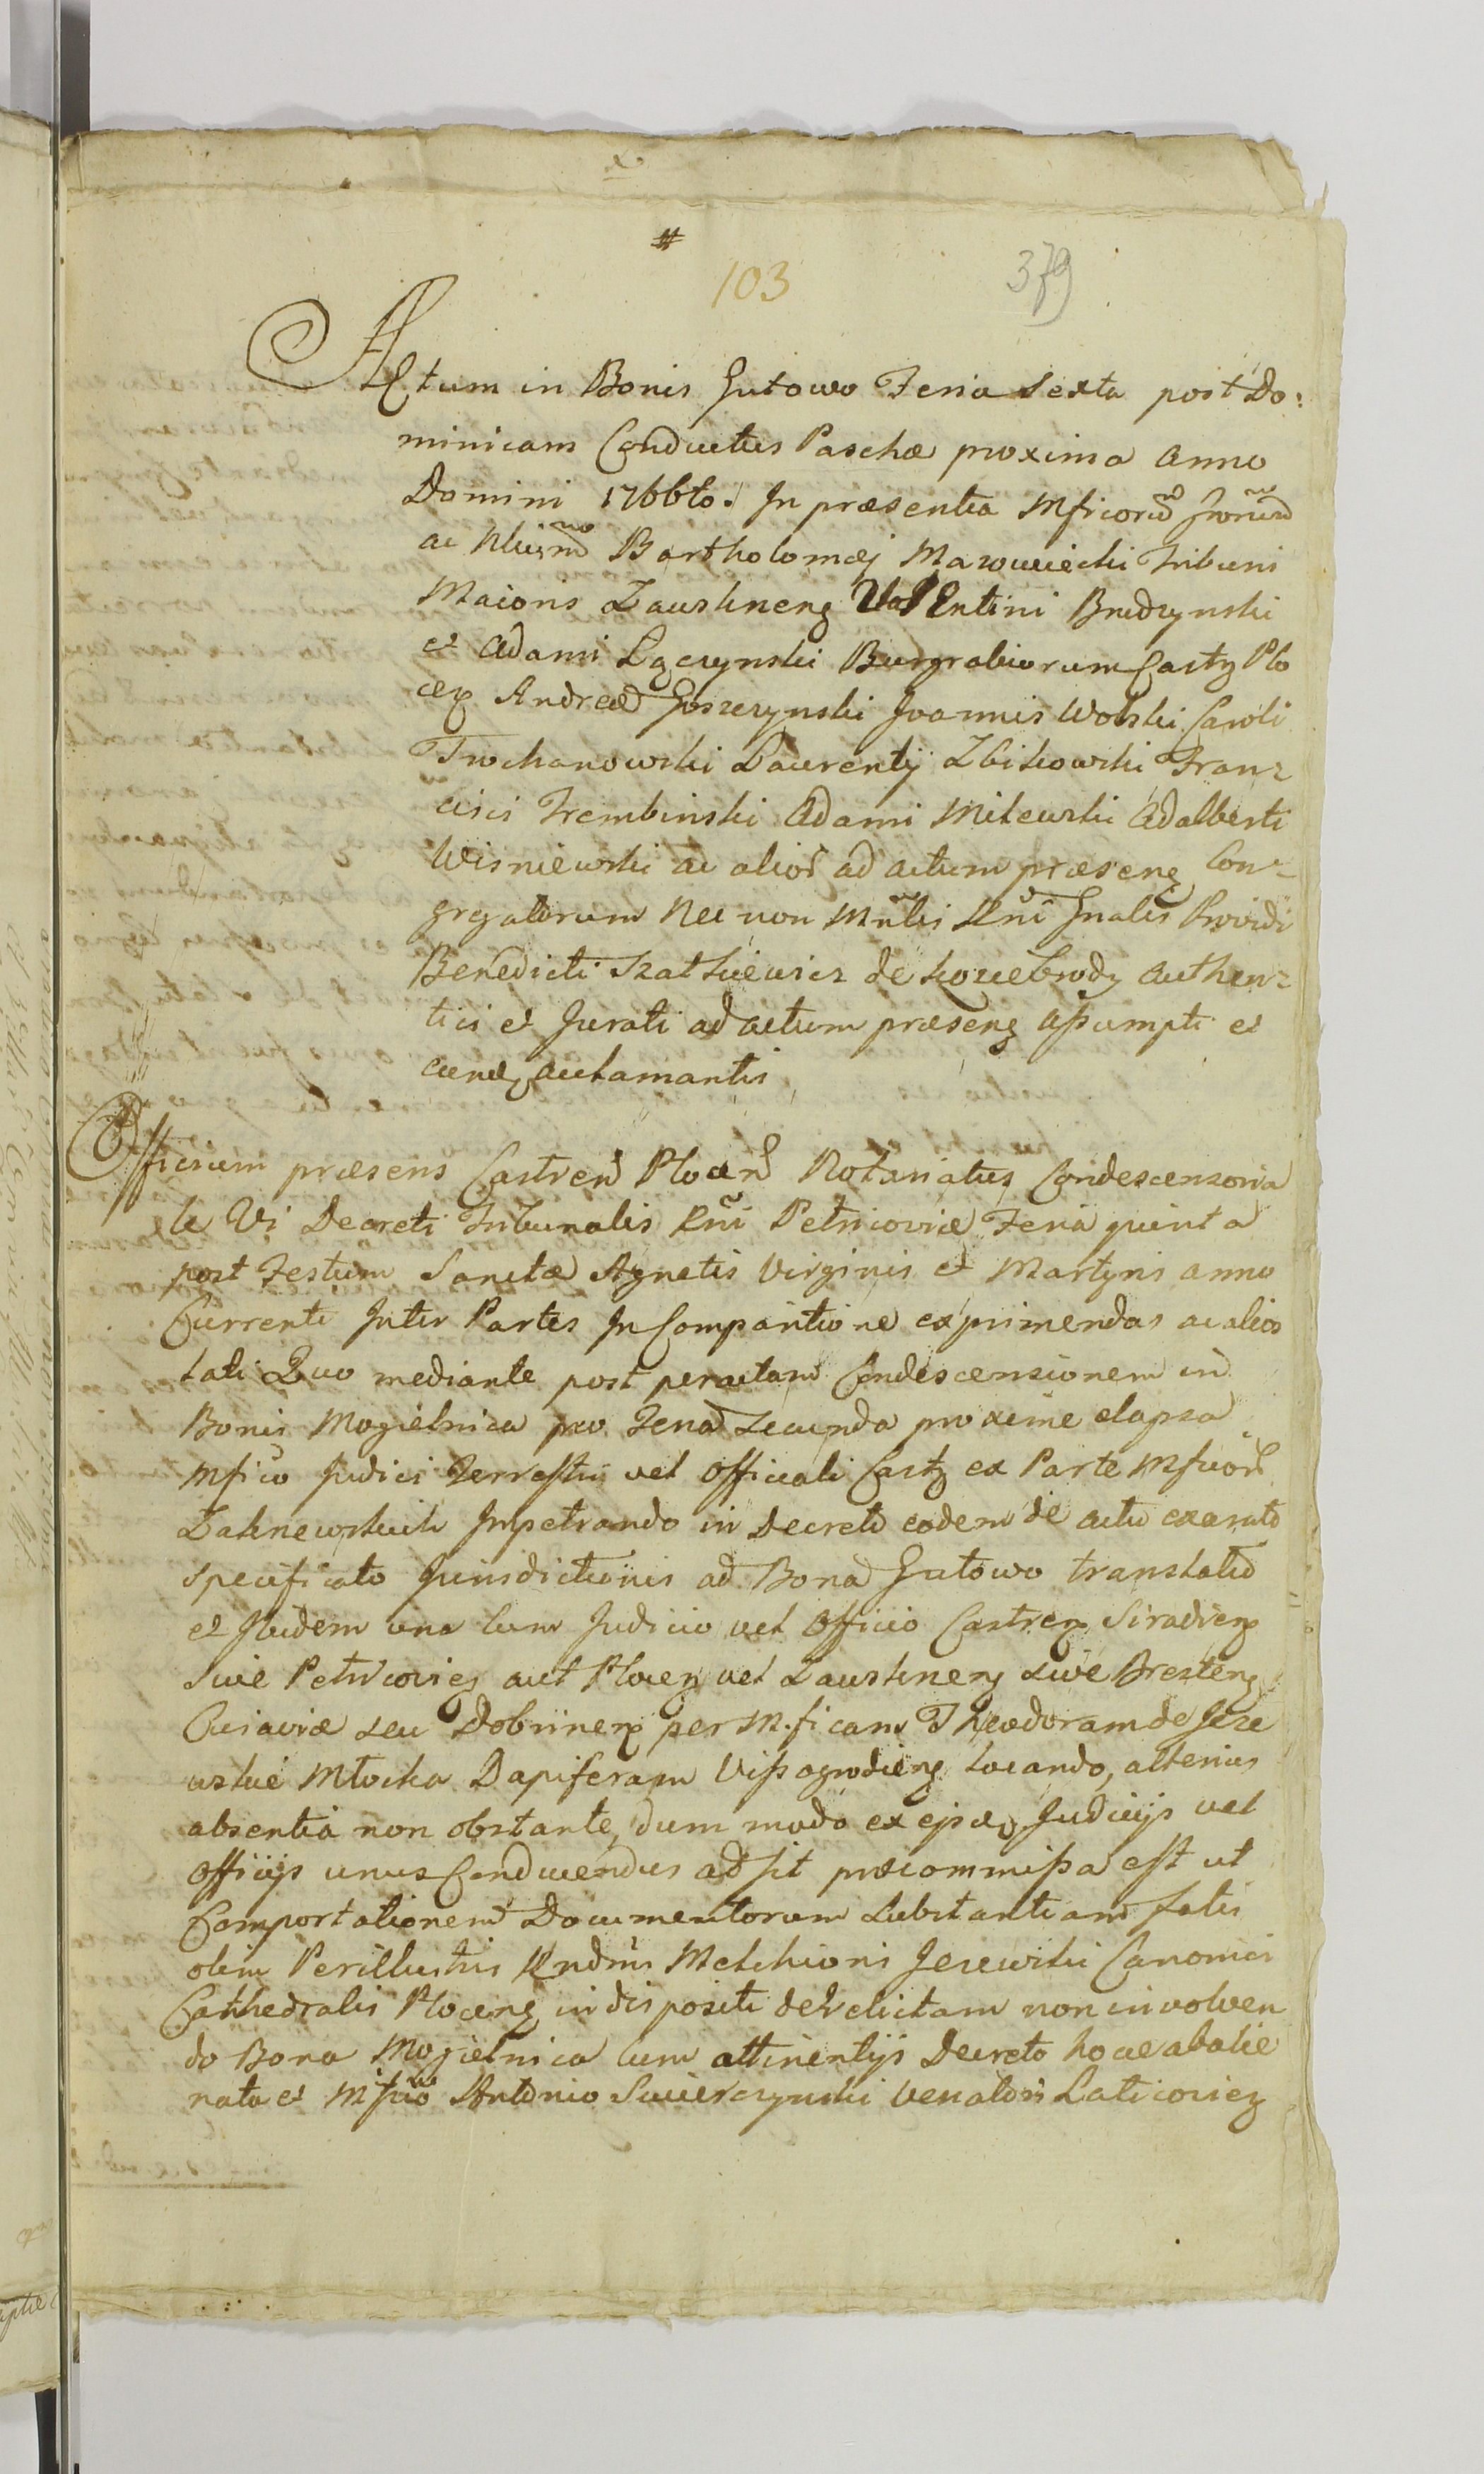 #
103 379
Actum in Bonis Gutowo Feria Sexta post Do:
minicam Conductus Paschæ proxima Anno
Domini 1766to. In præsentia Mficorũ
ac Bartholomæj Mazowiecki Tribuni
Maioris Zawskrneng Valentini Brudzynski
et Adami Łączynski Burgrabiorum Castrz Plo
ceñ Andreæ Goszczynski Joannis Wolski Caroli
Trochanowski Laurentij Zbikowski Fran-
cisci Trembinski Adami Milewski Adalberti
Wisniewski ac alior ad actum præseng Con-
gregatorum Nec non Mñlis Rñi Gnalis Providi
Benedicti de authen-
tici et Jurati ad actum præseng assumpti et
eund acclamantis
Officium præsens Castren Plocen Notariatus Condescensoria
le Vi Decreti Tribunalis Rñi Petricoviæ Feria quinta
post Festum Sanctæ Agnetis Virginis et Martyris anno
Currenti Inter Partes In Comparitione exprimendas ac alios
lati Quo mediante post peractam Condescensionem in
Bonis Mogielnica pro Feria Secunda proxime elapsa
Mfico Judici Terrestri vel Officiali Castz ex Parte Mficor
Zakrzewskich Impetrando in Decreto eodem de actu exarato
specificato Jurisdictionis ad Bona Gutowo translatio
et Ibidem una Cum Judicio vel Officio Castreñ Siradieñ
Sive Petricovieg aut Ploceg vel Zawskrneng sive Bresteng
Cuiaviæ seu Dobrineñ per M.ficam Theodoram de Jeze
wskie Młocka Dapiferam Vissogrodieng locando, alterius
absentia non obstante, dum modo ex ejsd Judicijs vel
officijs unus Conducendus ad sit præcommissa est ut
Comportationem Documentorum Substantiam fatis
olim Perillustris Rndmi Melchioris Jezewski Canonici
Cathedralis Ploceng indispositi derelictam non involven
do Bona Mogielnica Cum attinentijs Decreto hocce abalie
nata et Mfico Antonio Swierczynski Venatori Laticovieg